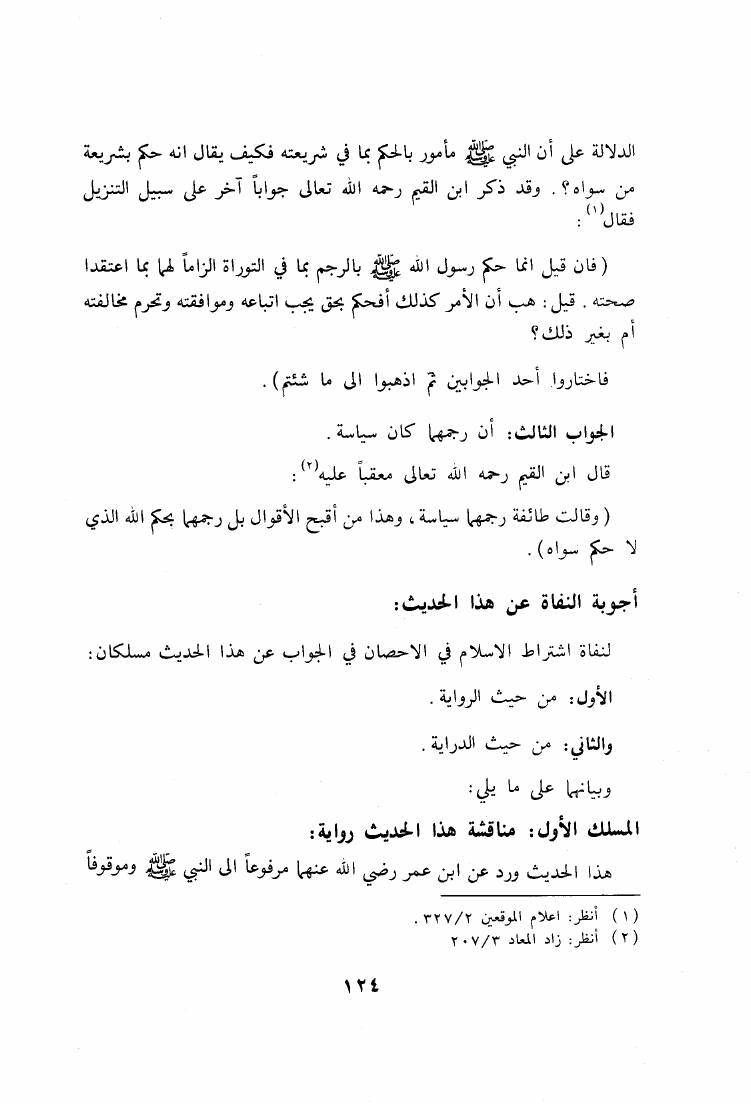 الدلالة على أن النبي ﷺ مأمور بالحكم بما في شريعته فكيف يقال انه حكم بشريعة
من سواه؟ . وقد ذكر ابن القيم رحمه الله تعالى جواباً آخر على سبيل التنزيل
فقال(١) :
( فان قيل انما حكم رسول الله ﷺ بالرجم بما في التوراة الزاماً لهما بما اعتقدا
صحته . قيل : هب أن الأمر كذلك أفحكم بحق يجب اتباعه وموافقته وتحرم مخالفته
أم بغير ذلك؟
فاختاروا أحد الجوابين ثم اذهبوا الى ما شئتم) .
الجواب الثالث: أن رجمهما كان سياسة .
قال ابن القيم رحمه الله تعالى معقباً عليه(٢) :
( وقالت طائفة رجمهما سياسة ، وهذا من أقبح الأقوال بل رجمهما بحكم الله الذي
لا حكم سواه) .
أجوبة النفاة عن هذا الحديث:
لنفاة اشتراط الاسلام في الاحصان في الجواب عن هذا الحديث مسلكان:
الأول: من حيث الرواية .
والثاني: من حيث الدراية .
وبيانهما على ما يلي:
المسلك الأول: مناقشة هذا الحديث رواية:
هذا الحديث ورد عن ابن عمر رضي الله عنهما مرفوعاً الى النبي ﷺ وموقوفاً
(١) أنظر: اعلام الموقعين ٣٢٧/٢ .
(٢) أنظر: زاد المعاد ٢٠٧/٣
١٢٤